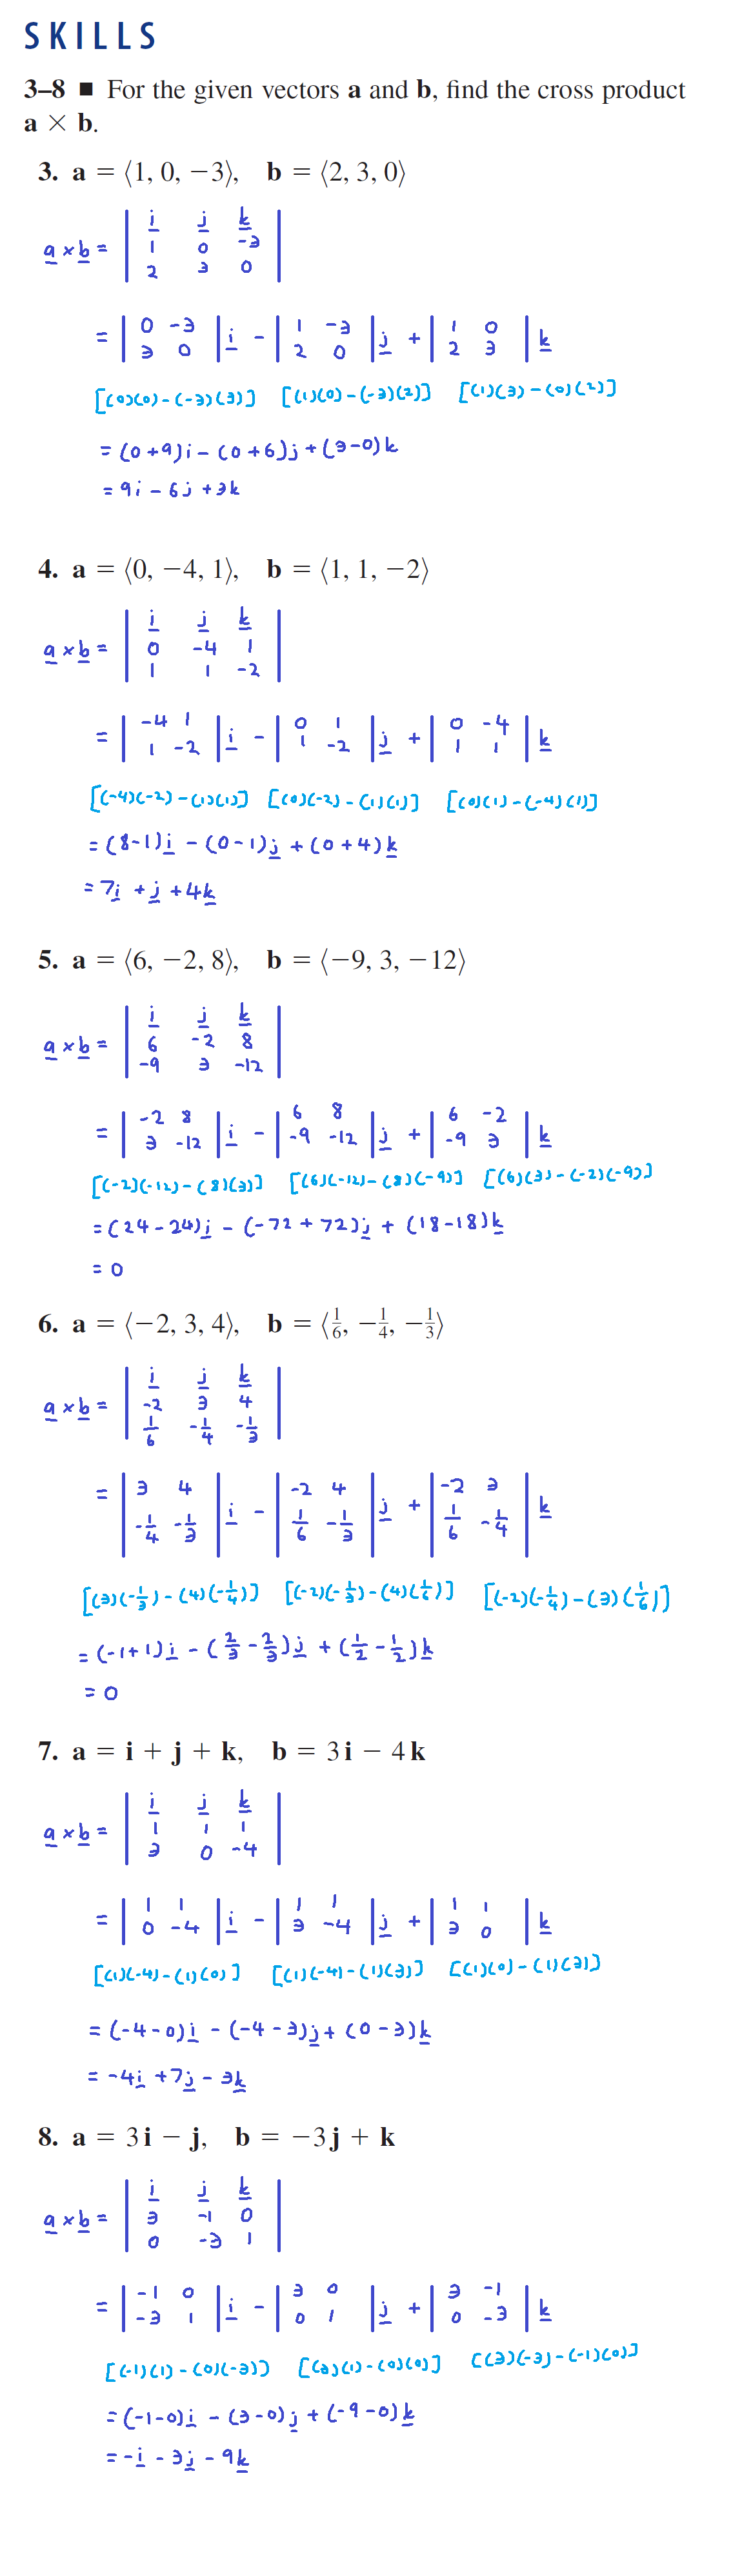 SKILLS
3–8 ■ For the given vectors a and b, find the cross product
a × b.
3. a = ⟨1, 0, −3⟩, b = ⟨2, 3, 0⟩
i j k
a × b = | 1 0 -3 |
2 3 0
= | 0 -3 | i - | 1 -3 | j + | 1 0 | k
3 0 2 0 2 3
[(0)(0) - (-3)(3)] [(1)(0) - (-3)(2)] [(1)(3) - (0)(2)]
= (0+9)i - (0+6)j + (3-0)k
= 9i - 6j + 3k
4. a = ⟨0, −4, 1⟩, b = ⟨1, 1, −2⟩
i j k
a × b = | 0 -4 1 |
1 1 -2
= | -4 1 | i - | 0 1 | j + | 0 -4 | k
1 -2 1 -2 1 1
[(-4)(-2) - (1)(1)] [(0)(-2) - (1)(1)] [(0)(1) - (-4)(1)]
= (8-1)i - (0-1)j + (0+4)k
= 7i + j + 4k
5. a = ⟨6, −2, 8⟩, b = ⟨−9, 3, −12⟩
i j k
a × b = | 6 -2 8 |
-9 3 -12
= | -2 8 | i - | 6 8 | j + | 6 -2 | k
3 -12 -9 -12 -9 3
[(-2)(-12) - (8)(3)] [(6)(-12) - (8)(-9)] [(6)(3) - (-2)(-9)]
= (24-24)i - (-72+72)j + (18-18)k
= 0
6. a = ⟨−2, 3, 4⟩, b = ⟨1/6, −1/4, −1/3⟩
i j k
a × b = | -2 3 4 |
1/6 -1/4 -1/3
= | 3 4 | i - | -2 4 | j + | -2 3 | k
-1/4 -1/3 1/6 -1/3 1/6 -1/4
[(3)(-1/3) - (4)(-1/4)] [(-2)(-1/3) - (4)(1/6)] [(-2)(-1/4) - (3)(1/6)]
= (-1+1)i - (2/3 - 2/3)j + (1/2 - 1/2)k
= 0
7. a = i + j + k, b = 3i − 4k
i j k
a × b = | 1 1 1 |
3 0 -4
= | 1 1 | i - | 1 1 | j + | 1 1 | k
0 -4 3 -4 3 0
[(1)(-4) - (1)(0)] [(1)(-4) - (1)(3)] [(1)(0) - (1)(3)]
= (-4-0)i - (-4-3)j + (0-3)k
= -4i + 7j - 3k
8. a = 3i − j, b = −3j + k
i j k
a × b = | 3 -1 0 |
0 -3 1
= | -1 0 | i - | 3 0 | j + | 3 -1 | k
-3 1 0 1 0 -3
[(-1)(1) - (0)(-3)] [(3)(1) - (0)(0)] [(3)(-3) - (-1)(0)]
= (-1-0)i - (3-0)j + (-9-0)k
= -i - 3j - 9k